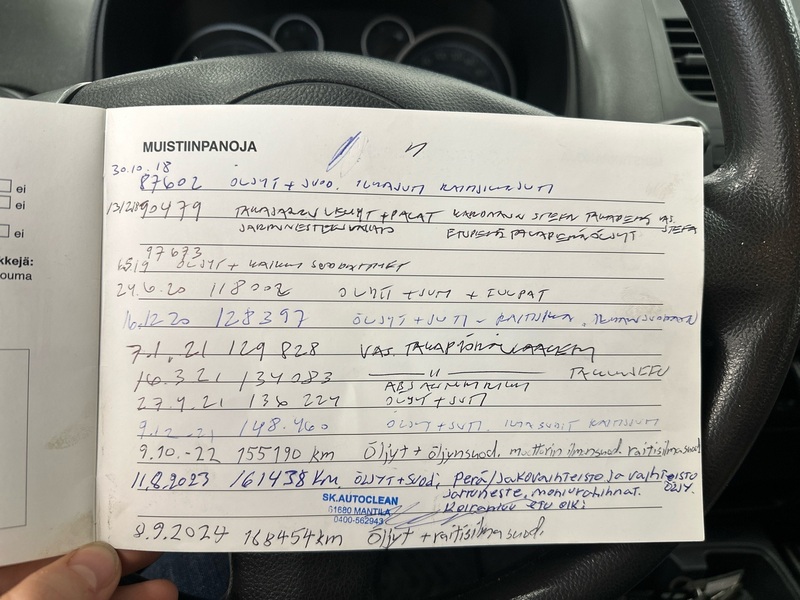 ei
ei
ei
kkejä:
ouma
MUISTIINPANOJA
30.10.18
87602 ÖLJYT + SUOD. ILMASUOT RAITISILMASUOT
90479 TAKAJARRU LEVYT + PALAT
JARRUNESTEEN VAIHTO ETUPERÄ TAKAPERÄ ÖLJYT
97673
ÖLJYT + KAIKKI SUODATTIMET
24.6.20 118002 ÖLJYT + SUOT + TULPAT
16.12.20 128397 ÖLJYT + SUOT - RAITISILMA. ILMANSUODATIN
7.1.21 129 828 VAS. TAKAPYÖRÄNLAAKERI
16.3.21 134083 —— " ——
27.4.21 136 227 ÖLJYT + SUOT
9.12-21 148.460 ÖLJYT + SUOT. RAITISILM
9.10.-22 155190 km Öljyt + öljynsuod. moottorin ilmansuod. raitisilmasuod
11.8.2023 161438 Km ÖLJYT + SUOD. Perä/jakovaihteisto ja vaihteisto
öljy.
jarruneste, moniurahihnat.
etu oik.
SK.AUTOCLEAN
61680 MANTILA
0400-562943
8.9.2024 168454 km Öljyt + raitisilmasuod.